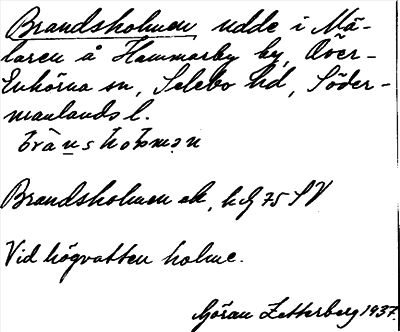 Brandsholmen udde i Mä-
laren å Hammarby by, Över-
Enhörna sn, Selebo hd, Söder-
manlands l.
Brandsholmen ek, hd 75 SV
Vid högvatten holme.
Göran Zetterberg 1937.